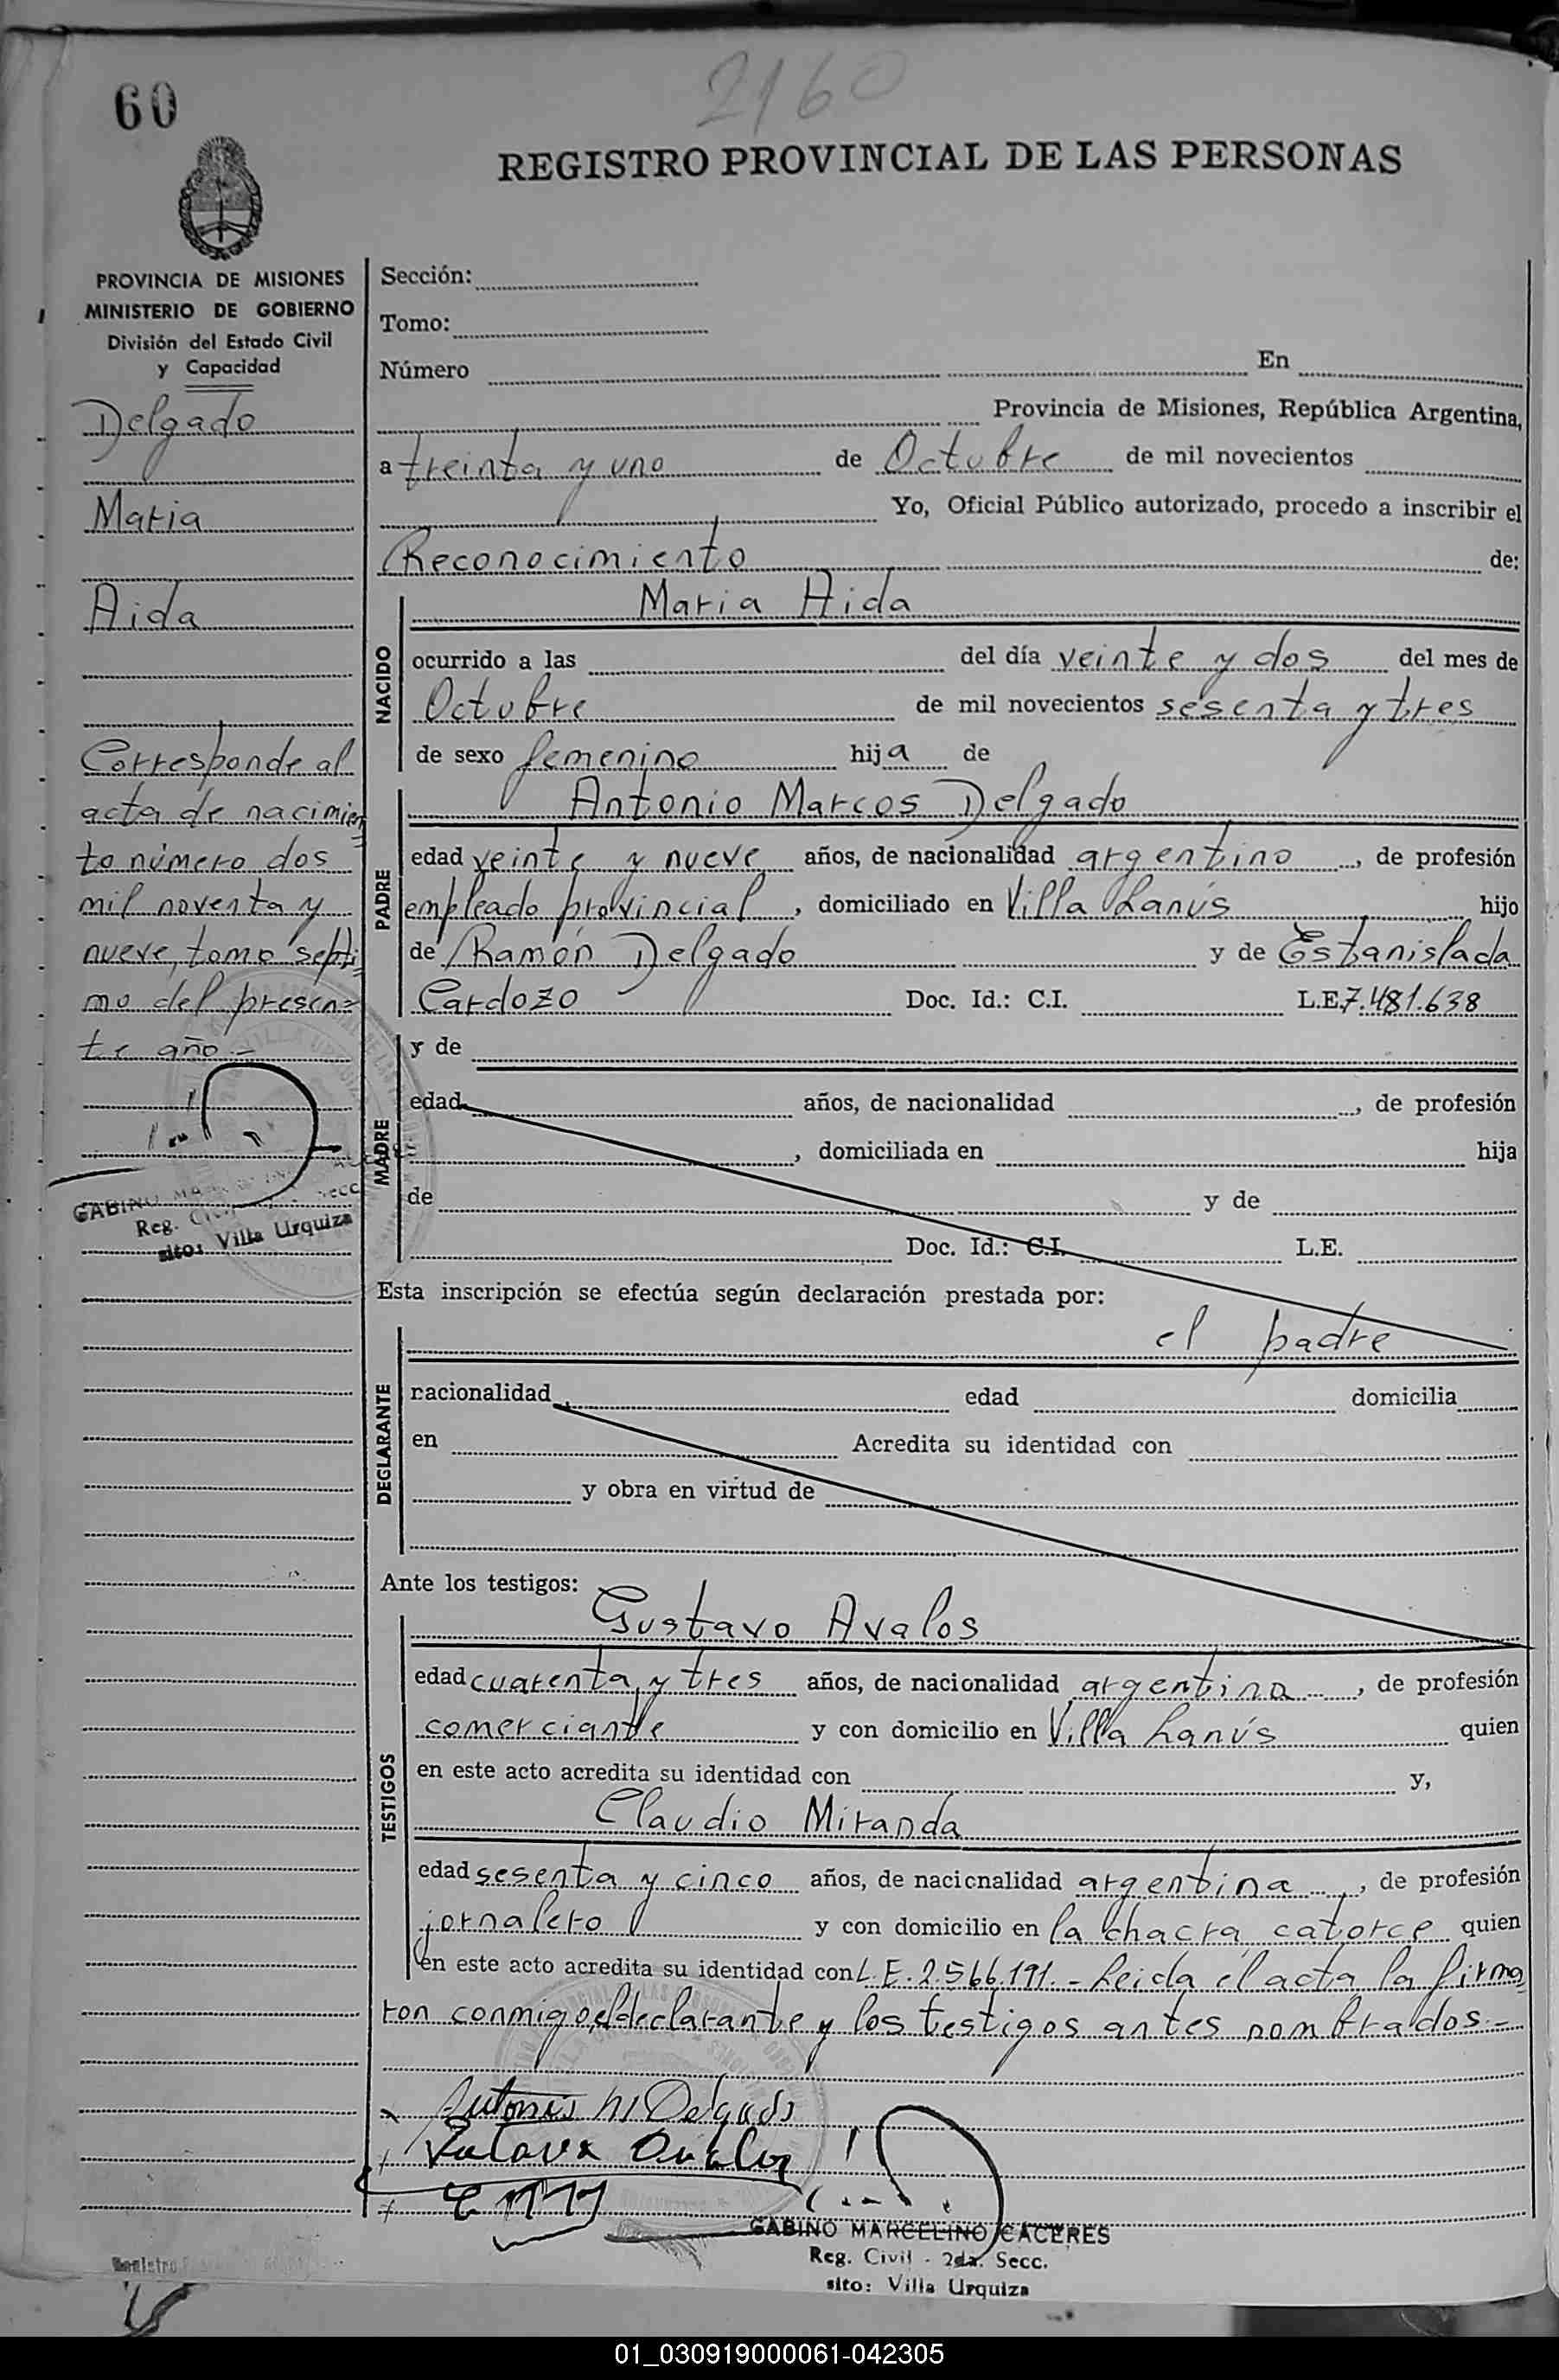 60
2160
REGISTRO PROVINCIAL DE LAS PERSONAS
PROVINCIA DE MISIONES
MINISTERIO DE GOBIERNO
División del Estado Civil
y Capacidad
Delgado
Maria
Aida
Corresponde al
acta de nacimien
to número dos
mil noventa y
nueve, tomo sépti
mo del presen=
te año.-
GABINO
Reg. Civil Secc
sito: Villa Urquiza
Sección:
Tomo:
Número En
Provincia de Misiones, República Argentina,
a treinta y uno de Octubre de mil novecientos
Yo, Oficial Público autorizado, procedo a inscribir el
Reconocimiento de:
NACIDO
Maria Aida
ocurrido a las del día veinte y dos del mes de
Octubre de mil novecientos sesenta y tres
de sexo femenino hija de
PADRE
Antonio Marcos Delgado
edad veinte y nueve años, de nacionalidad argentino, de profesión
empleado provincial, domiciliado en Villa Lanús hijo
de Ramón Delgado y de Estanislada
Cardozo Doc. Id.: C.I. L.E. 7.481.638
MADRE
y de
edad años, de nacionalidad , de profesión
, domiciliada en hija
de y de
Doc. Id.: C.I. L.E.
Esta inscripción se efectúa según declaración prestada por:
el padre
DECLARANTE
racionalidad edad domicilia
en Acredita su identidad con
y obra en virtud de
Ante los testigos:
TESTIGOS
Gustavo Avalos
edad cuarenta y tres años, de nacionalidad argentina, de profesión
comerciante y con domicilio en Villa Lanús quien
en este acto acredita su identidad con y,
Claudio Miranda
edad sesenta y cinco años, de nacicnalidad argentina, de profesión
jornalero y con domicilio en la chacra catorce quien
en este acto acredita su identidad con L.E. 2.566.191.- Leida el acta la firma
ron conmigo, el declarante y los testigos antes nombrados.-
Antonio M Delgado
GABINO MARCELINO CACERES
Reg. Civil - 2da. Secc.
sito: Villa Urquiza
Registro
01_030919000061-042305